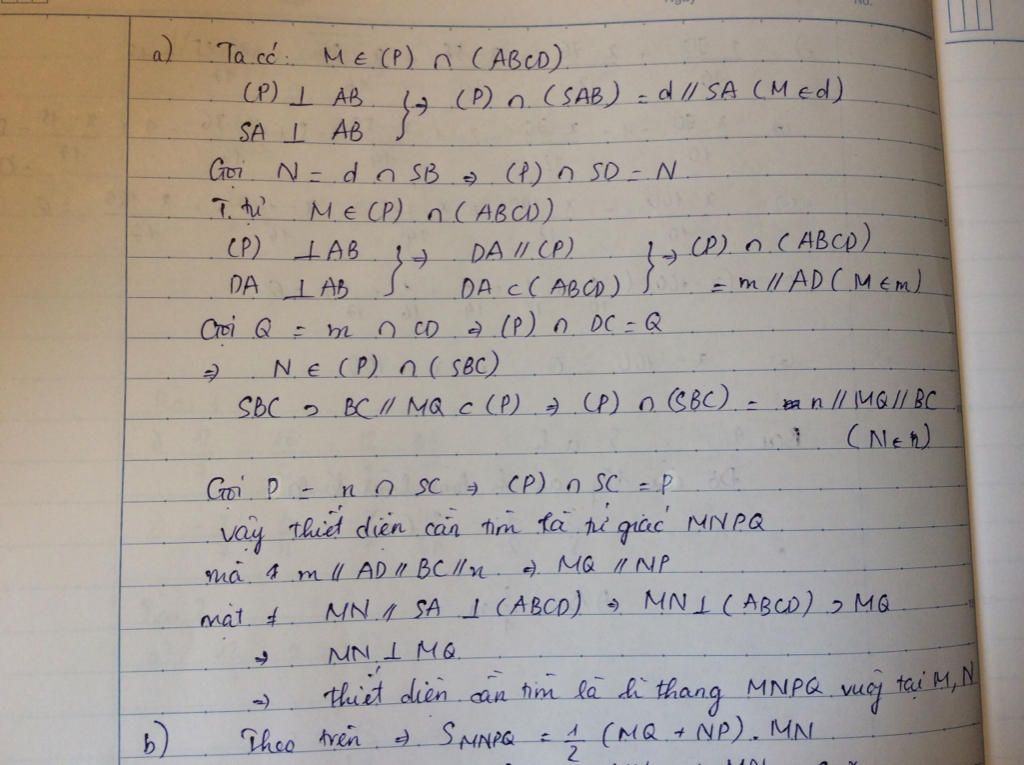 a) Ta có: M ∈ (P) ∩ (ABCD)
(P) ⊥ AB } ⇒ (P) ∩ (SAB) = d // SA (M ∈ d)
SA ⊥ AB
Gọi N = d ∩ SB ⇒ (P) ∩ SD = N
T. tự M ∈ (P) ∩ (ABCD)
(P) ⊥ AB } ⇒ DA // (P) } ⇒ (P) ∩ (ABCD)
DA ⊥ AB DA ⊂ (ABCD) = m // AD (M ∈ m)
Gọi Q = m ∩ CD ⇒ (P) ∩ DC = Q
⇒ N ∈ (P) ∩ (SBC)
SBC ⊃ BC // MQ ⊂ (P) ⇒ (P) ∩ (SBC) = n // MQ // BC
(N ∈ n)
Gọi P = n ∩ SC ⇒ (P) ∩ SC = P
vậy thiết diện cần tìm là tứ giác MNPQ
mà m // AD // BC // n ⇒ MQ // NP
mặt ≠ MN // SA ⊥ (ABCD) ⇒ MN ⊥ (ABCD) ⊃ MQ
⇒ MN ⊥ MQ
⇒ thiết diện cần tìm là hì thang MNPQ vuôg tại M, N
b) Theo trên ⇒ S MNPQ = 1/2 (MQ + NP) . MN